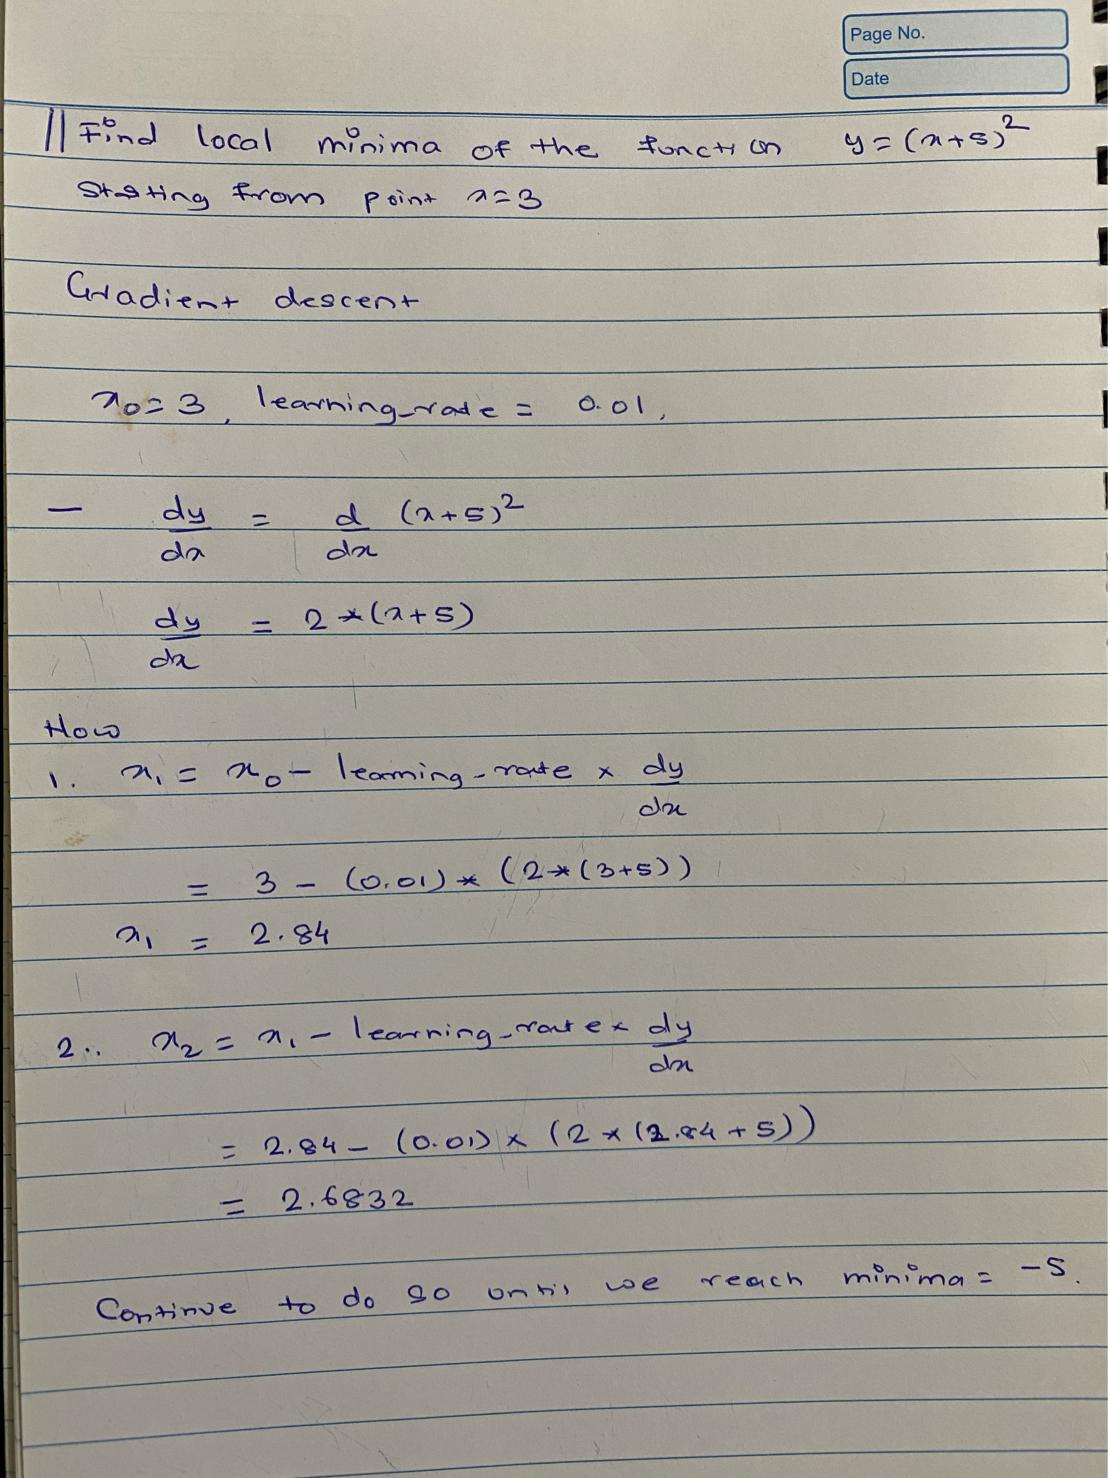 Page No.
Date
|| Find local minima of the function y = (x+5)²
starting from point x=3
Gradient descent
x₀=3, learning_rate = 0.01,
— dy/dx = d/dx (x+5)²
dy/dx = 2*(x+5)
Now
1. x₁ = x₀ - learning_rate × dy/dx
= 3 - (0.01) * (2*(3+5))
x₁ = 2.84
2.. x₂ = x₁ - learning_rate × dy/dx
= 2.84 - (0.01) × (2 * (2.84 + 5))
= 2.6832
Continue to do so until we reach minima = -5.